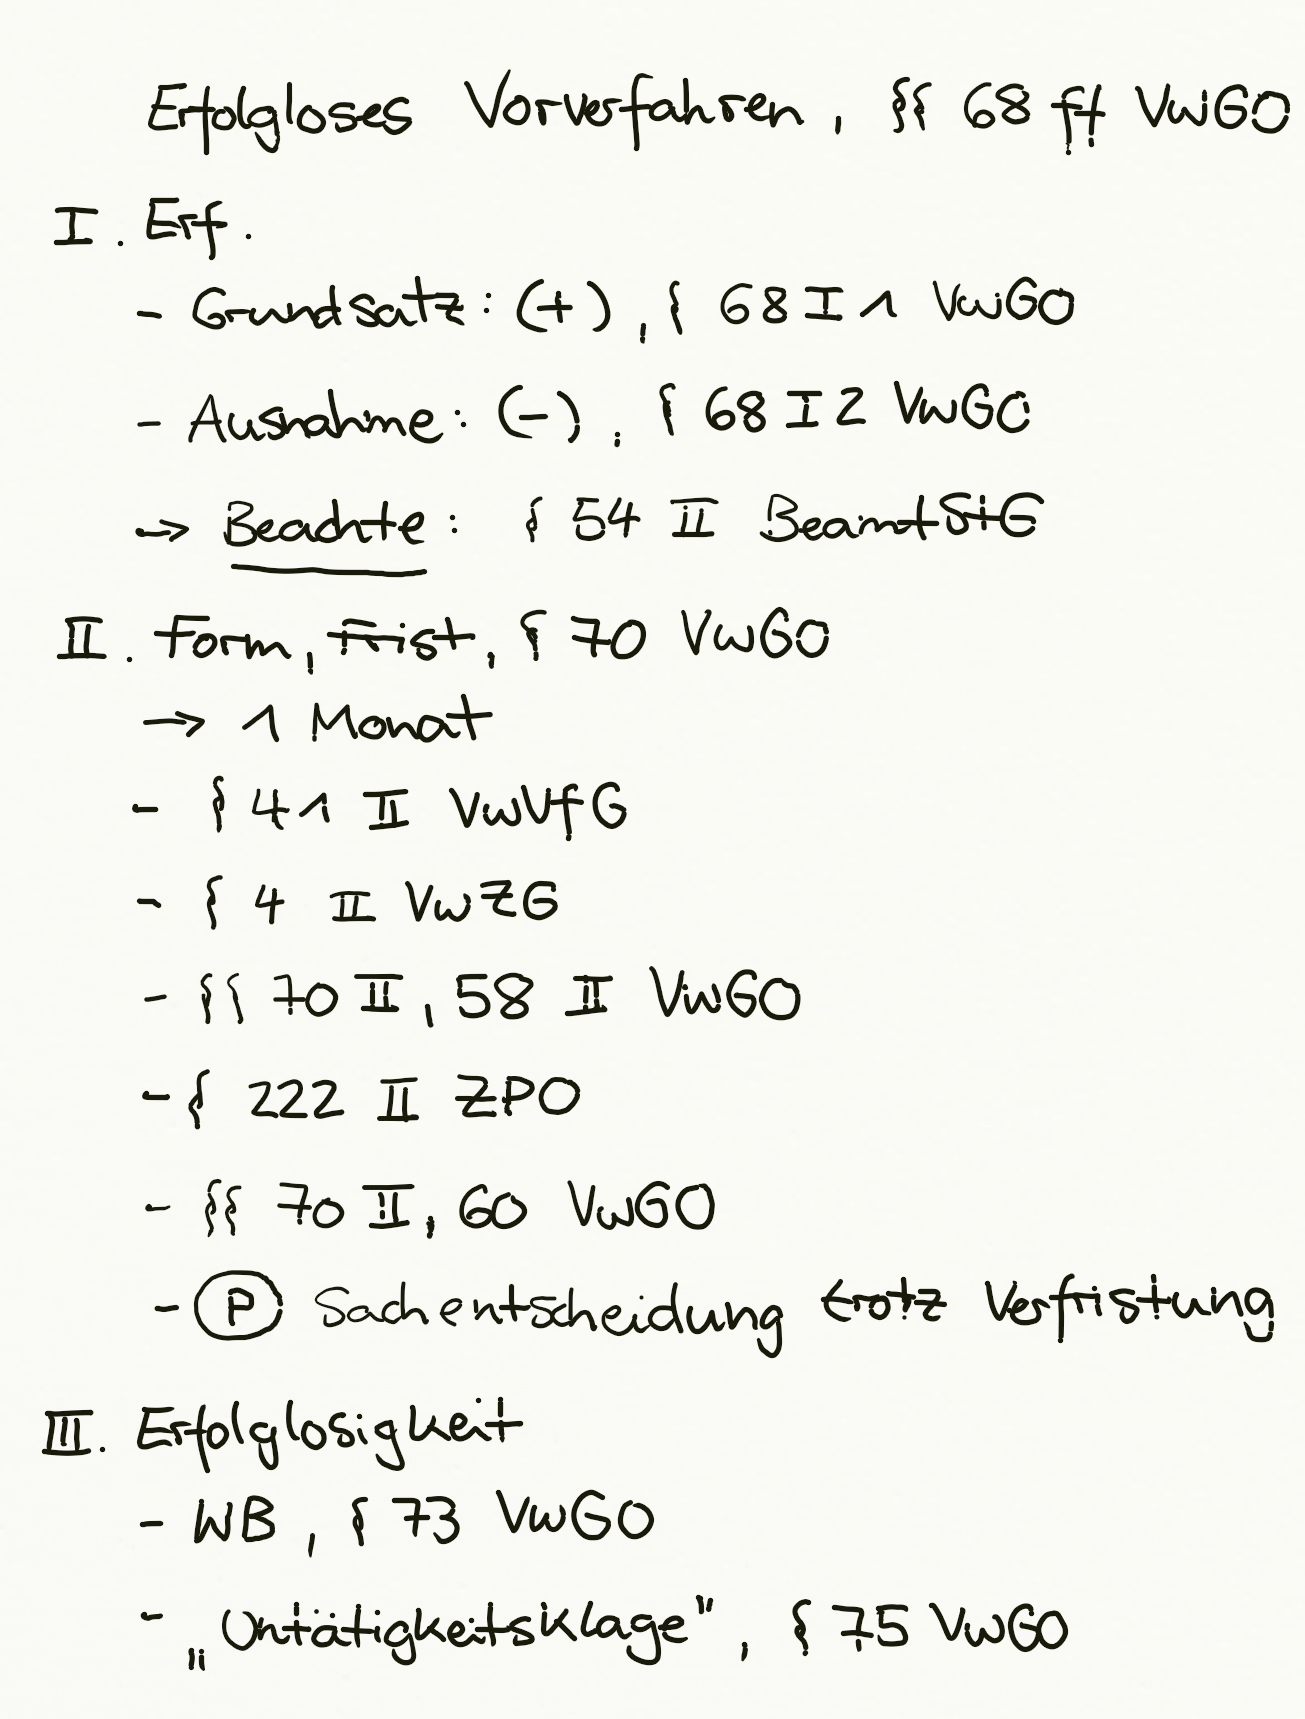 Erfolgloses Vorverfahren, §§ 68 ff VwGO
I. Erf.
- Grundsatz: (+), § 68 I 1 VwGO
- Ausnahme: (-), § 68 I 2 VwGO
→ Beachte: § 54 II BeamtStG
II. Form, Frist, § 70 VwGO
→ 1 Monat
- § 41 II VwVfG
- § 4 II VwZG
- §§ 70 II, 58 II VwGO
- § 222 II ZPO
- §§ 70 II, 60 VwGO
- (P) Sachentscheidung trotz Verfristung
III. Erfolglosigkeit
- WB, § 73 VwGO
- „Untätigkeitsklage", § 75 VwGO